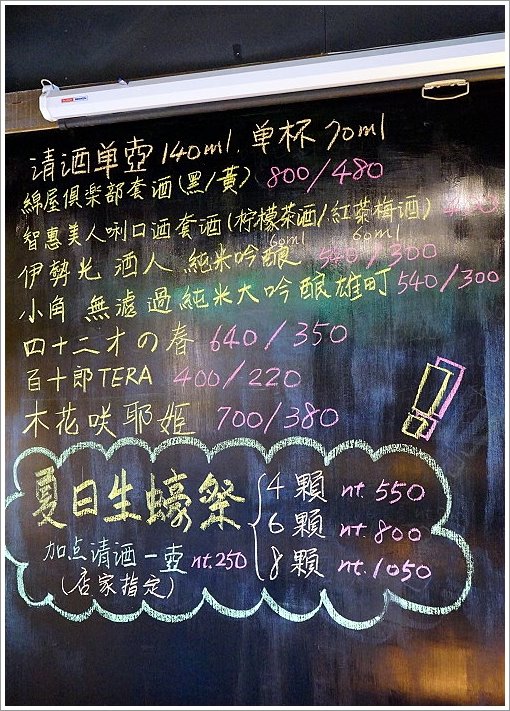 清酒单壺 140ml. 单杯 70ml
綿屋俱楽部套酒(黑/黃) 800/480
智惠美人唎口酒套酒(柠檬茶酒/紅茶梅酒)
60ml 60ml
伊勢光 酒人 純米吟釀 540/300
小角 無濾過純米大吟釀雄町 540/300
四十二才の春 640/350
百十郎TERA 400/220
木花咲耶姬 700/380
!
夏日生蠔祭
4顆 nt.550
6顆 nt.800
8顆 nt.1050
加点清酒一壺 nt.250
(店家指定)